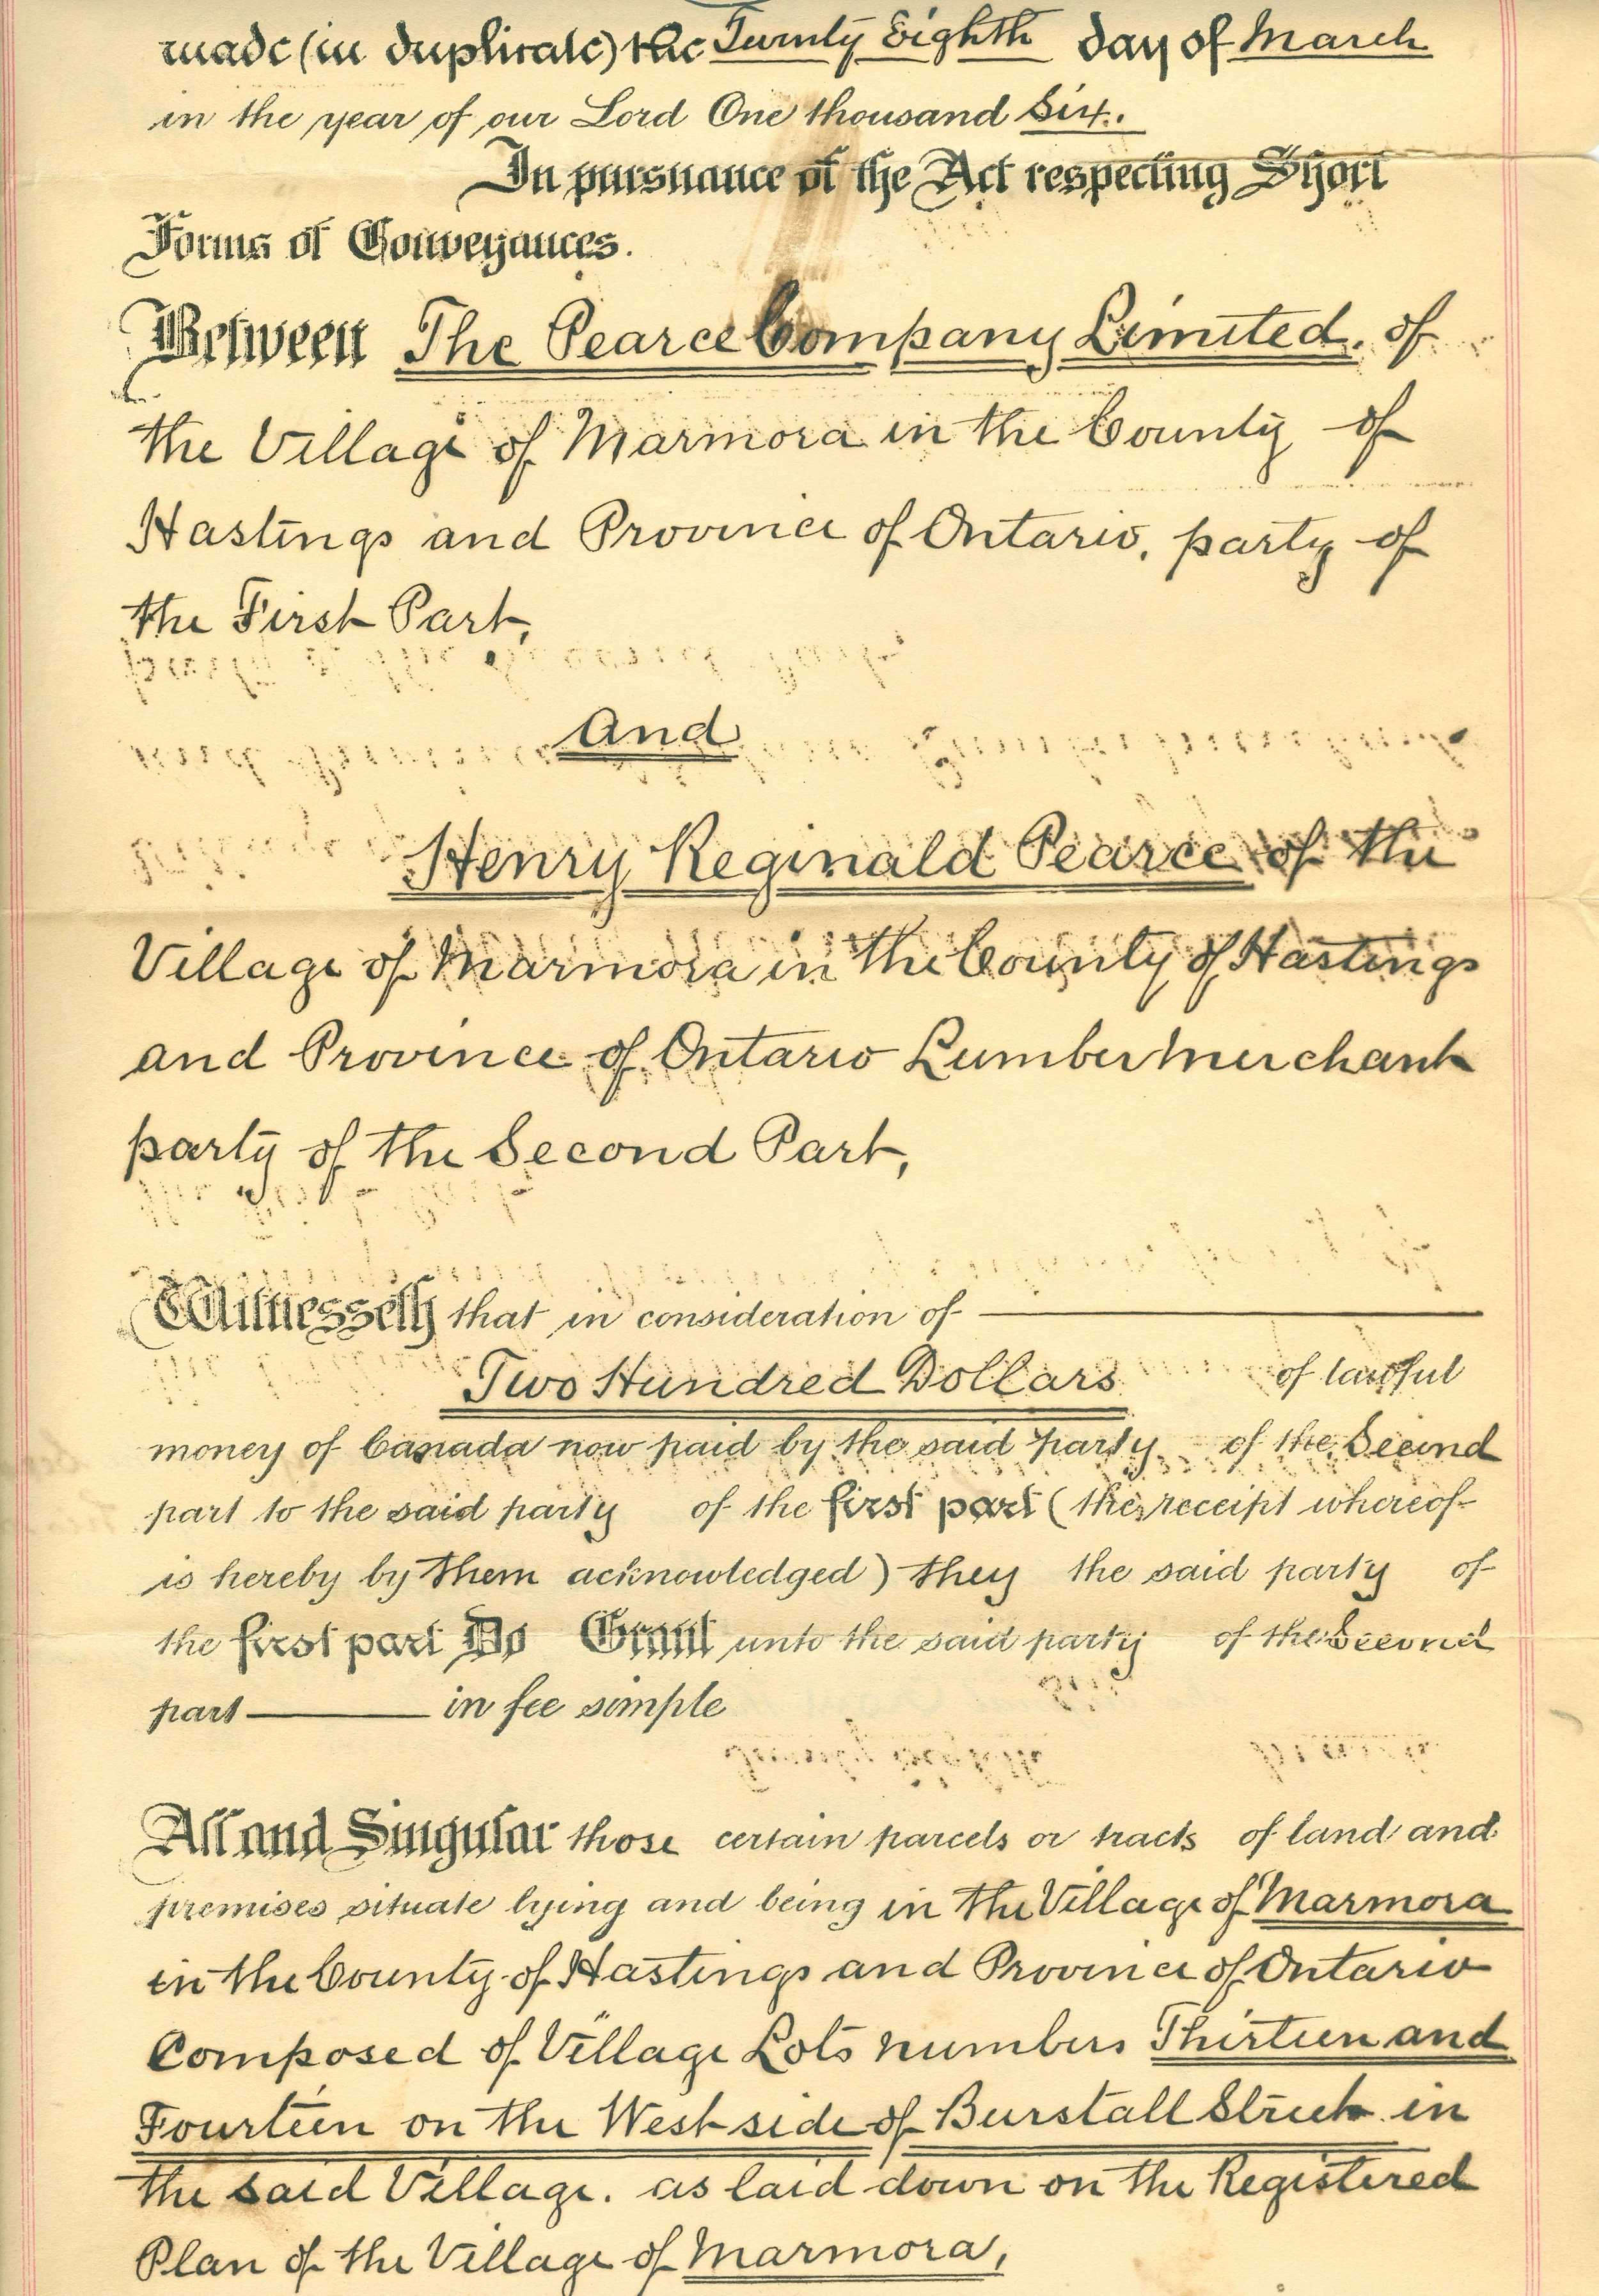 made (in duplicate) the Twenty Eighth day of March
in the year of our Lord One thousand Six.
In pursuance of the Act respecting Short
Forms of Conveyances.
Between The Pearce Company Limited. of
the Village of Marmora in the County of
Hastings and Province of Ontario, party of
the First Part,
And
Henry Reginald Pearce of the
Village of Marmora in the County of Hastings
and Province of Ontario Lumber Merchant
party of the Second Part,
Witnesseth that in consideration of
Two Hundred Dollars of lawful
money of Canada now paid by the said party of the Second
part to the said party of the first part (the receipt whereof
is hereby by them acknowledged) they the said party of
the first part Do Grant unto the said party of the Second
part in fee simple
All and Singular those certain parcels or tracts of land and
premises situate lying and being in the Village of Marmora
in the County of Hastings and Province of Ontario
Composed of Village Lots numbers Thirteen and
Fourteen on the West side of Burstall Street in
the said Village. as laid down on the Registered
Plan of the Village of Marmora,